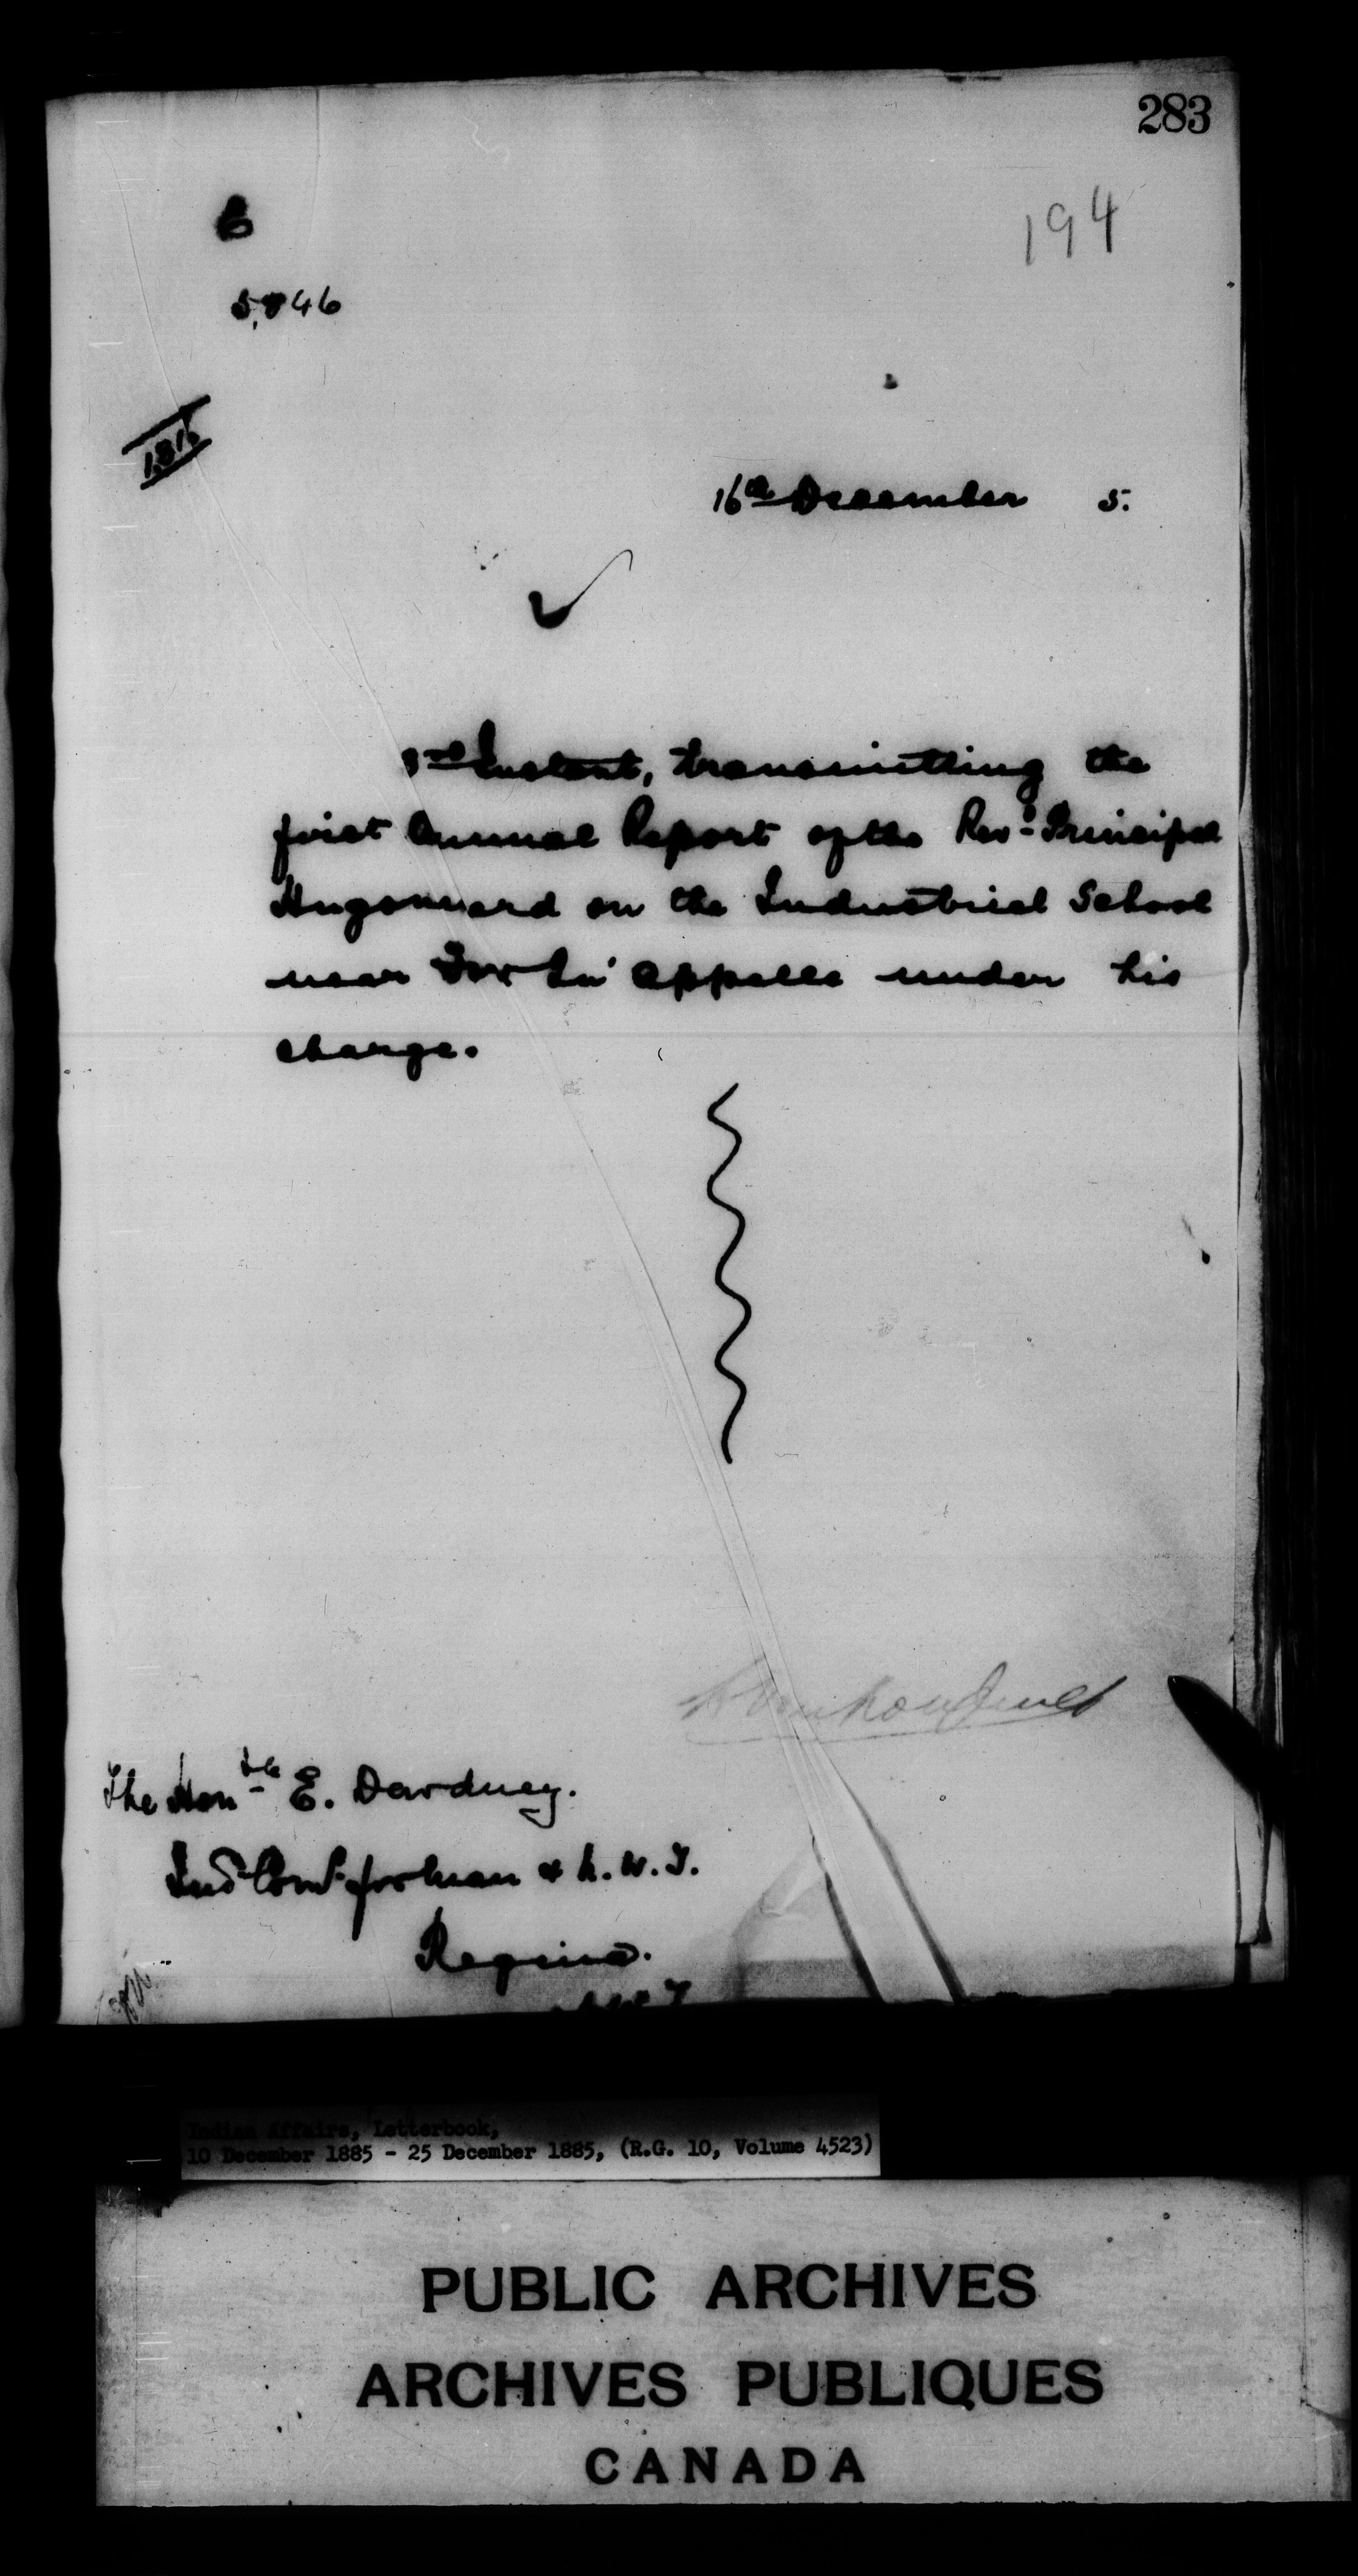 283
194
6
5,846
1316
16th December 5.
3rd Instant, transmitting the
first Annual Report of the Revd Principal
Hugonnard on the Industrial School
near Fort Qu'Appelle under his
charge.
L Vankoughnet
The Honble E. Dewdney.
Ind Comr for Man & N. W. T.
Regina.
Indian Affairs, Letterbook,
10 December 1885 - 25 December 1885, (R.G. 10, Volume 4523)
PUBLIC ARCHIVES
ARCHIVES PUBLIQUES
CANADA